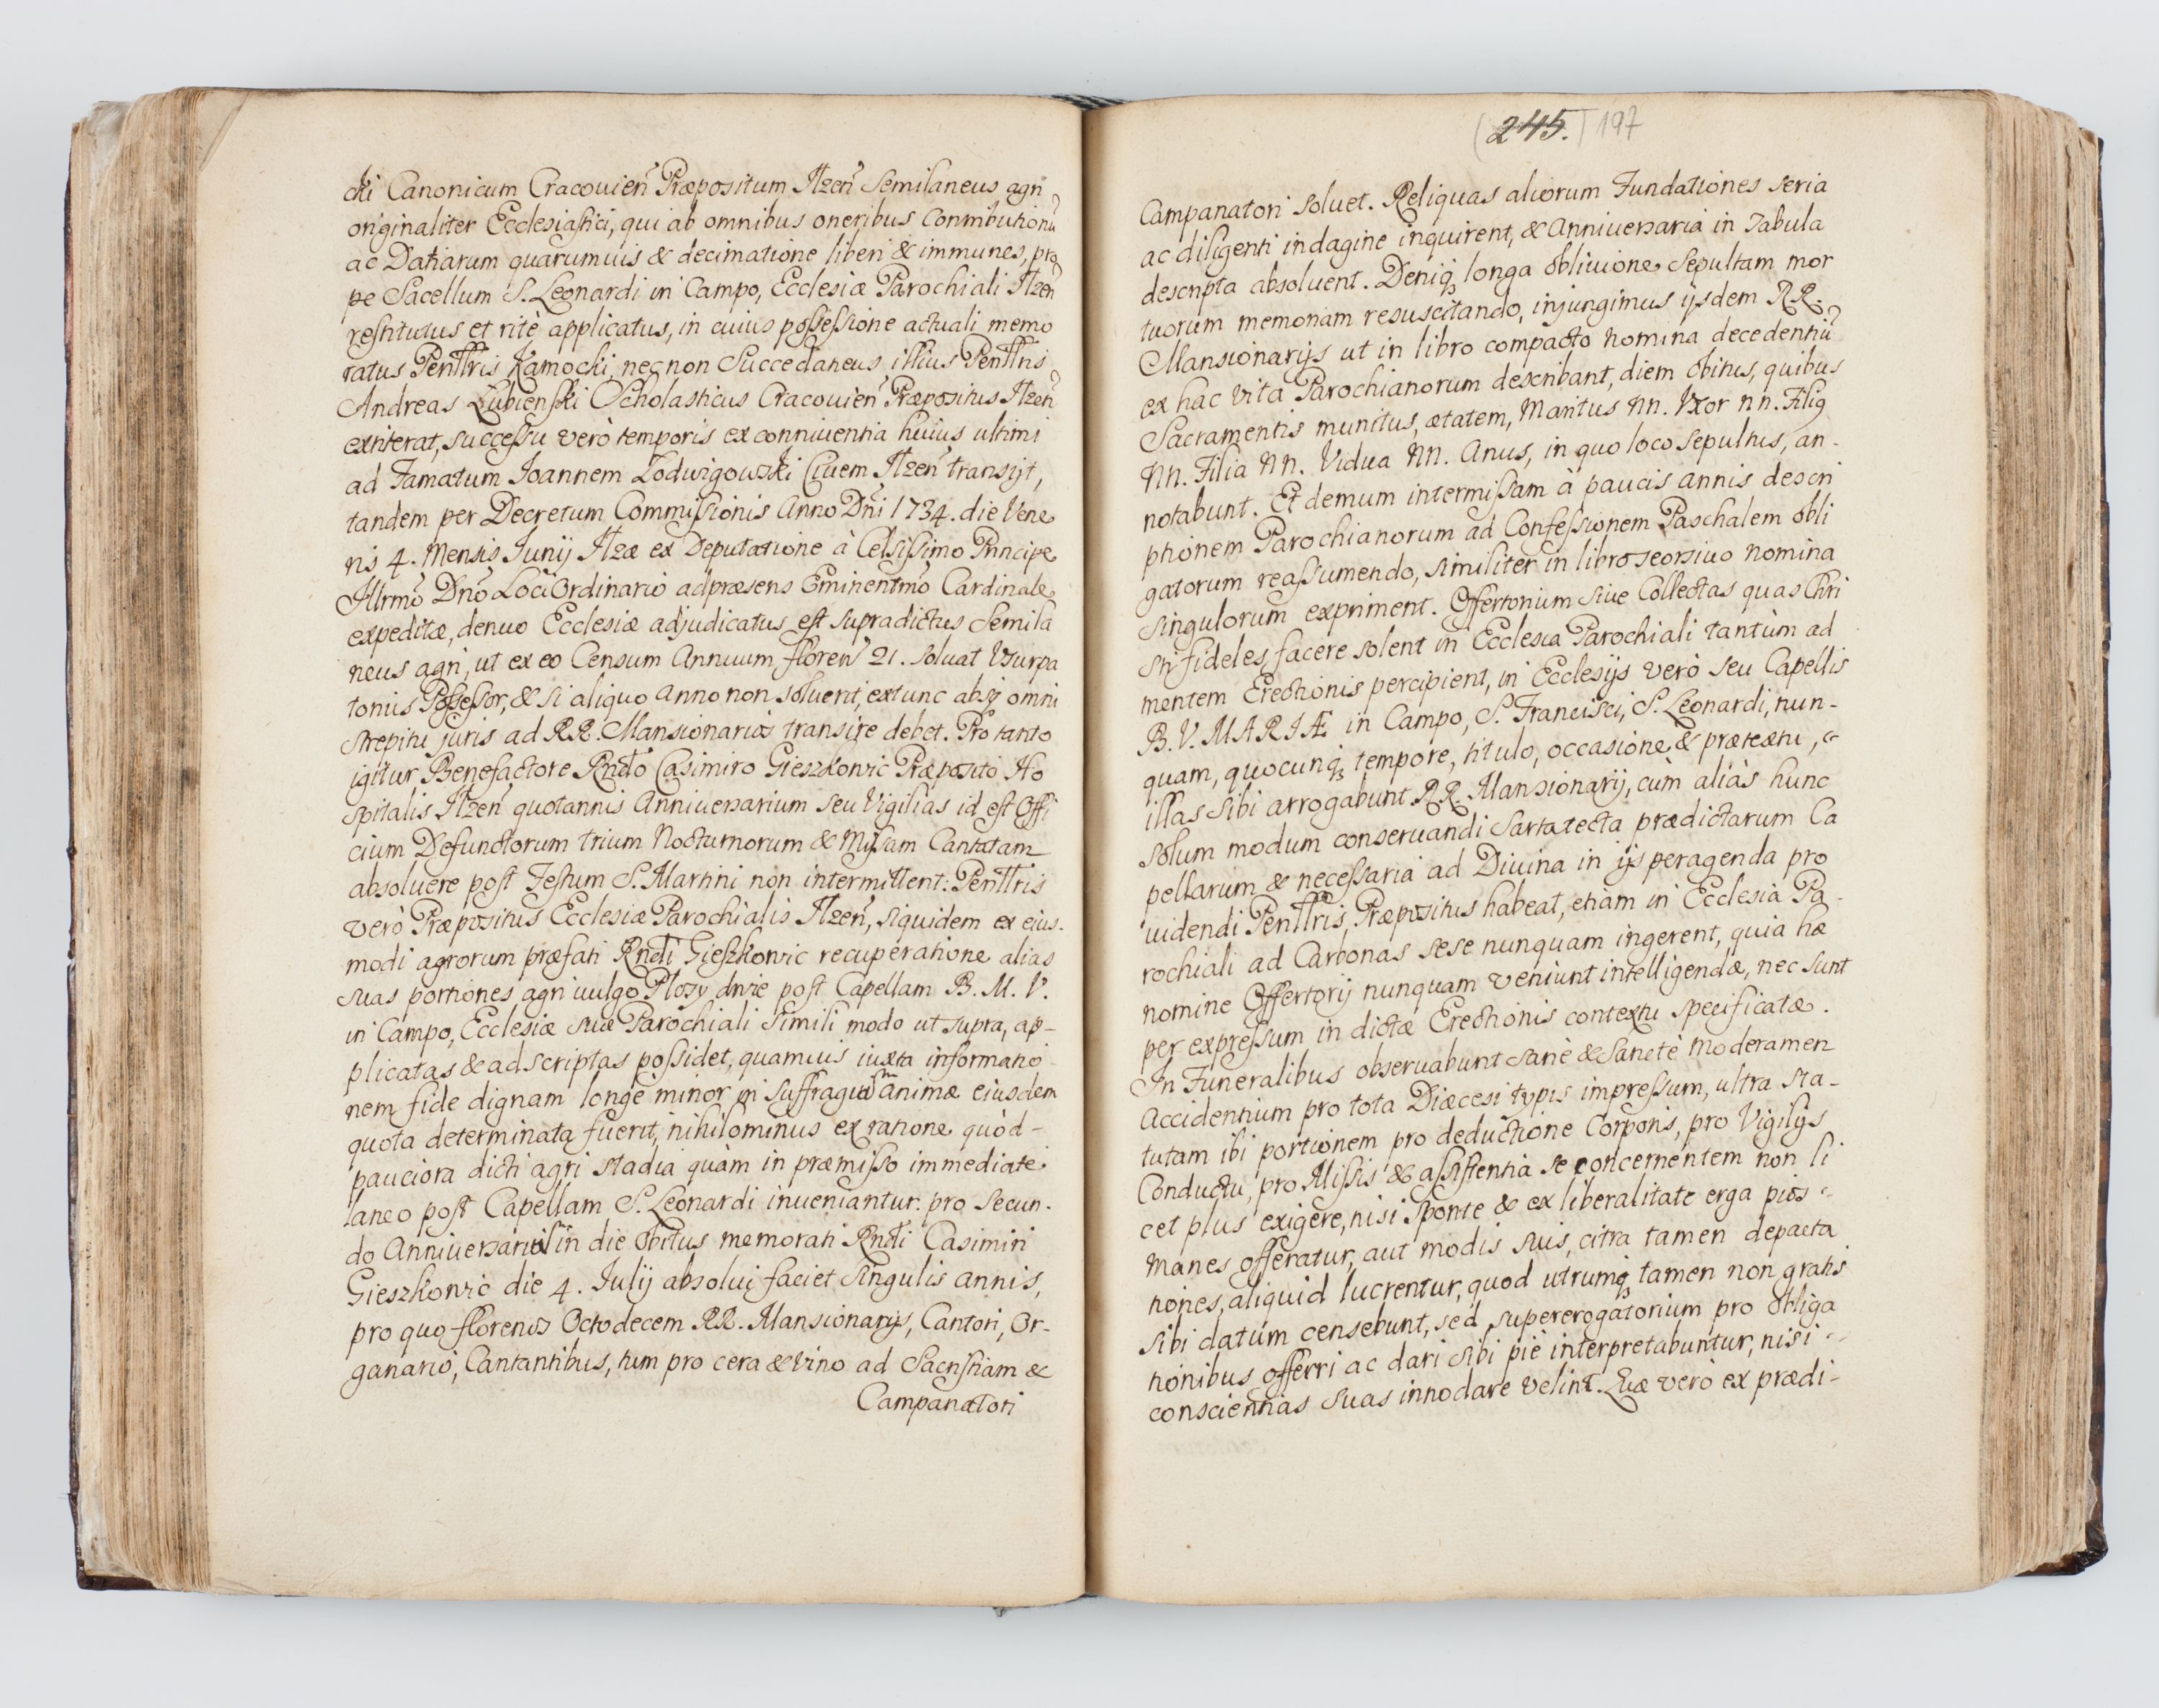 cki Canonicum Cracovien Præpositum Ilzen Semilaneus agri
originaliter Ecclesiastici, qui ab omnibus oneribus Contributionu
ac Datiarum quarumvis & decimatione liberi & immunes, pro
pe Sacellum S. Leonardi in Campo, Ecclesiæ Parochiali Ilzen
restitutus et ritè applicatus, in cuius possessione actuali memo
ratus Penlltris Kamocki, nec non Succedaneus illius Penlltris
Andreas Łubienski Scholasticus Cracovien Præpositus Ilzen
extiterat, successu verò temporis ex conniventia huius ultimi
ad Famatum Joannem Lodwigowski Civem Ilzen transijt,
tandem per Decretum Commissionis Anno Dni 1734. die Vene
ris 4. Mensis Junij Ilzæ ex Deputatione à Celsissimo Principe
Illrmo Dno Loci Ordinario ad præsens Eminentmo Cardinale
expeditæ, denuo Ecclesiæ adjudicatus est supradictus Semila
neus agri, ut ex eo Censum Annuum floren 21. solvat Usurpa
torius Possessor, & si aliquo Anno non solverit, extunc absq omni
strepitu juris ad RR. Mansionarios transire debet. Pro tanto
igitur Benefactore Rndo Casimiro Gieszkowic Præposito Ho
spitalis Ilzen quotannis Anniversarium seu Vigilias id est Offi
cium Defunctorum trium Nocturnorum & Missam Cantatam
absolvere post Festum S. Martini non intermittent: Penlltris
verò Præpositus Ecclesiæ Parochialis Ilzen, siquidem ex eius-
modi agrorum præfati Rndi Gieszkowic recuperatione alias
suas portiones agri vulgo Płosy dwie post Capellam B. M. V.
in Campo, Ecclesiæ suæ Parochiali simili modo ut supra, ap-
plicatas & adscriptas possidet, quamvis iuxta informatio
nem fide dignam longè minor in suffragium animæ eiusdem
quota determinata fuerit, nihilominus ex ratione quòd-
pauciora dicti agri stadia quàm in præmisso immediatè
laneo post Capellam S. Leonardi inveniantur: pro Secun-
do Anniversario in die obitus memorati Rndi Casimiri
Gieszkowic die 4. Julij absolvi faciet Singulis annis,
pro quo florenos Octodecem RR. Mansionarijs, Cantori, Or-
ganario, Cantantibus, tum pro cera & vino ad Sacristiam &
Campanatori
(245.) 197
Campanatori solvet. Reliquas aliorum Fundationes seria
ac diligenti indagine inquirent, & Anniversaria in Tabula
descripta absolvent. Deniq longa oblivione sepultam mor
tuorum memoriam resuscitando, injungimus ijsdem RR.
Mansionarijs ut in libro compacto nomina decedentiu
ex hac vita Parochianorum describant, diem obitus, quibus
Sacramentis munitus, ætatem, Maritus NN. Uxor NN. Filig
NN. Filia NN. Vidua NN. Anus, in quo loco sepultus, an-
notabunt. Et demum intermissam à paucis annis descri
ptionem Parochianorum ad Confessionem Paschalem obli
gatorum reassumendo, similiter in libro seorsivo nomina
singulorum expriment. Offertorium sive Collectas quas Chri
sti fideles facere solent in Ecclesia Parochiali tantùm ad
mentem Erectionis percipient, in Ecclesijs verò seu Capellis
B. V. MARIÆ in Campo, S. Francisci, S. Leonardi, nun-
quam, quocunq tempore, titulo, occasione & prætextu,
illas sibi arrogabunt RR. Mansionarij, cùm aliàs hunc
solum modum conservandi sartatecta prædictarum Ca
pellarum & necessaria ad Divina in ijs peragenda pro
videndi Penlltris, Præpositus habeat, etiam in Ecclesia Pa-
rochiali ad Carbonas sese nunquam ingerent, quia hæ
nomine Offertorij nunquam veniunt intelligendæ, nec sunt
per expressum in dictæ Erectionis contextu specificatæ.
In Funeralibus observabunt sanè & Sanctè Moderamen
Accidentium pro tota Diæcesi typis impressum, ultra sta-
tutam ibi portionem pro deductione Corporis, pro Vigilijs
Conductu, pro Missis & assistentia se concernentem non li
cet plus exigere, nisi sponte & ex liberalitate erga pios
Manes offeratur, aut modis suis, citra tamen depacta
tiones, aliquid lucrentur, quod utrumq tamen non gratis
sibi datum censebunt, sed supererogatorium pro obliga
tionibus offerri ac dari sibi piè interpretabuntur, nisi
conscientias suas innodare velint. Quæ verò ex prædi-